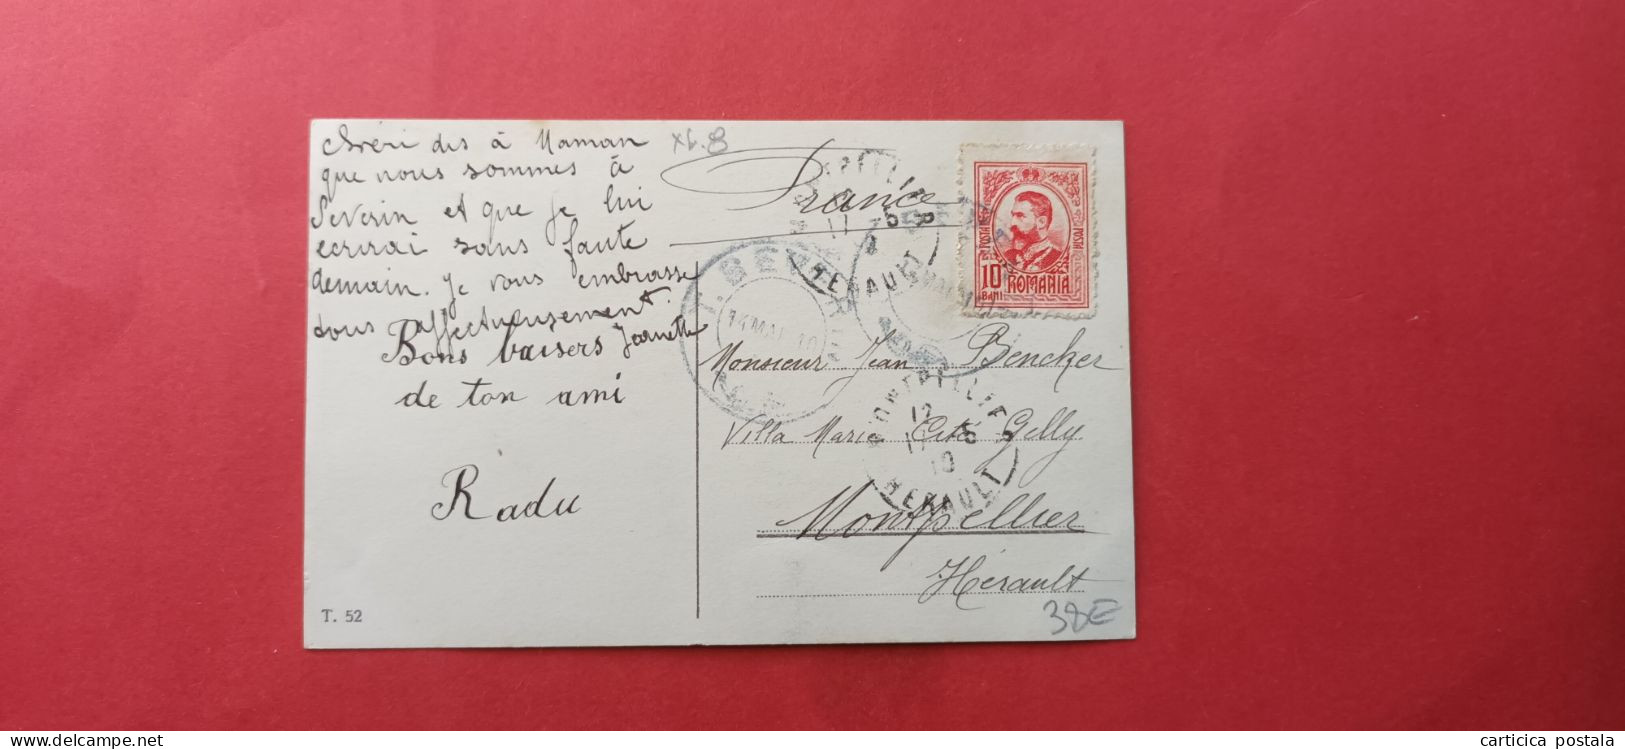 chéri dis à Maman
que nous sommes à
Severin et que je lui
ecrirai sans faute
demain. Je vous embrasse
tous affectueusement
Jeannette
Bons baisers
de ton ami
Radu
T. 52
France
POSTA
10
BANI
ROMANIA
T. SEVERIN
14 MAI 10
MONTPELLIER
HERAULT
Monsieur Jean Bencker
Villa Marie Cité Gelly
MONTPELLIER
12
17 5
10
HERAULT
Montpellier
Hérault
38E
www.delcampe.net
carticica postala